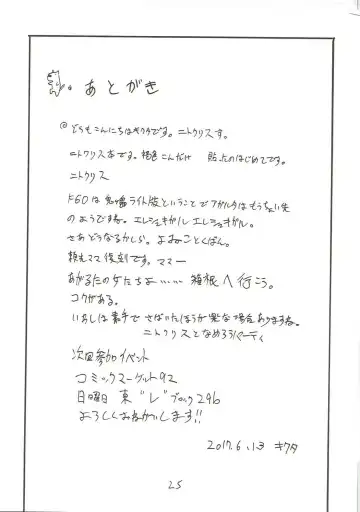 あとがき
@どうもこんにちはキクタです。ニトクリスす。
ニトクリス本です。褐色こんだけ 貼ったのはじめてです。
ニトクリス
FGOは鬼ヶ島ライト版ということでアガルタはもうちょい先
のようですね。エレシュキガル エレシュキガル。
さあどうなるかしら。よみのことくばん。
頼光ママ復刻です。ママー
あがるたの女たちよ……箱根へ行こう。
コクがある。
いわしは素手でさばいたほうが楽な場合ありますね。
ニトクリスとなめろうパーティ
次回参加イベント
コミックマーケット92
日曜日 東"レ"ブロック29b
よろしくおねがいします!!
2017.6.13 キクタ
25